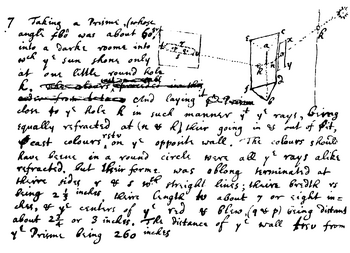 7 Taking a Prisme, (whose
angle fbd was about 60gr)
into a darke roome into
wch ye sun shone only
at one little round hole
k. And laying it
close to ye hole k in such manner yt ye rays, being
equally refracted at (n & h) their going in & out of it,
cast colours rstv on ye opposite wall. The colours should
have beene in a round circle were all ye rays alike
refracted, but their forme was oblong terminated at
theire sides r & s wth streight lines; theire bredth rs
being 2⅓ inches, theire length to about 7 or eight in=
ches, & ye centers of ye red & blew, (q & p) being distant
about 2¾ or 3 inches. The distance of ye wall trsv from
ye Prisme being 260 inches